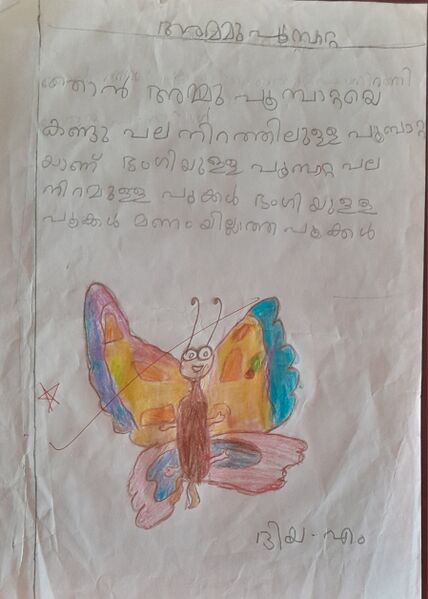 അമ്മു പൂമ്പാറ്റ
ഞാൻ അമ്മു പൂമ്പാറ്റയെ
കണ്ടു പല നിറത്തിലുള്ള പൂമ്പാറ്റ
യാണ് ഭംഗിയുള്ള പൂമ്പാറ്റ പല
നിറമുള്ള പൂക്കൾ ഭംഗിയുള്ള
പൂക്കൾ മണംയില്ലാത്ത പൂക്കൾ
ദിയ . എം